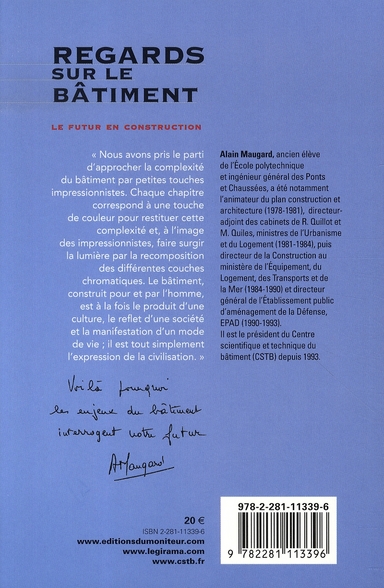 REGARDS
SUR LE
BÂTIMENT
LE FUTUR EN CONSTRUCTION
« Nous avons pris le parti
d'approcher la complexité
du bâtiment par petites touches
impressionnistes. Chaque chapitre
correspond à une touche
de couleur pour restituer cette
complexité et, à l'image
des impressionnistes, faire surgir
la lumière par la recomposition
des différentes couches
chromatiques. Le bâtiment,
construit pour et par l'homme,
est à la fois le produit d'une
culture, le reflet d'une société
et la manifestation d'un mode
de vie ; il est tout simplement
l'expression de la civilisation. »
Voilà pourquoi
les enjeux du bâtiment
interrogent notre futur
AMaugard
Alain Maugard, ancien élève
de l'École polytechnique
et ingénieur général des Ponts
et Chaussées, a été notamment
l'animateur du plan construction et
architecture (1978-1981), directeur-
adjoint des cabinets de R. Quillot et
M. Quiles, ministres de l'Urbanisme
et du Logement (1981-1984), puis
directeur de la Construction au
ministère de l'Équipement, du
Logement, des Transports et de
la Mer (1984-1990) et directeur
général de l'Établissement public
d'aménagement de la Défense,
EPAD (1990-1993).
Il est le président du Centre
scientifique et technique du
bâtiment (CSTB) depuis 1993.
20 €
ISBN 2-281-11339-6
www.editionsdumoniteur.com
www.legirama.com
www.cstb.fr
978-2-281-11339-6
9 782281 113396